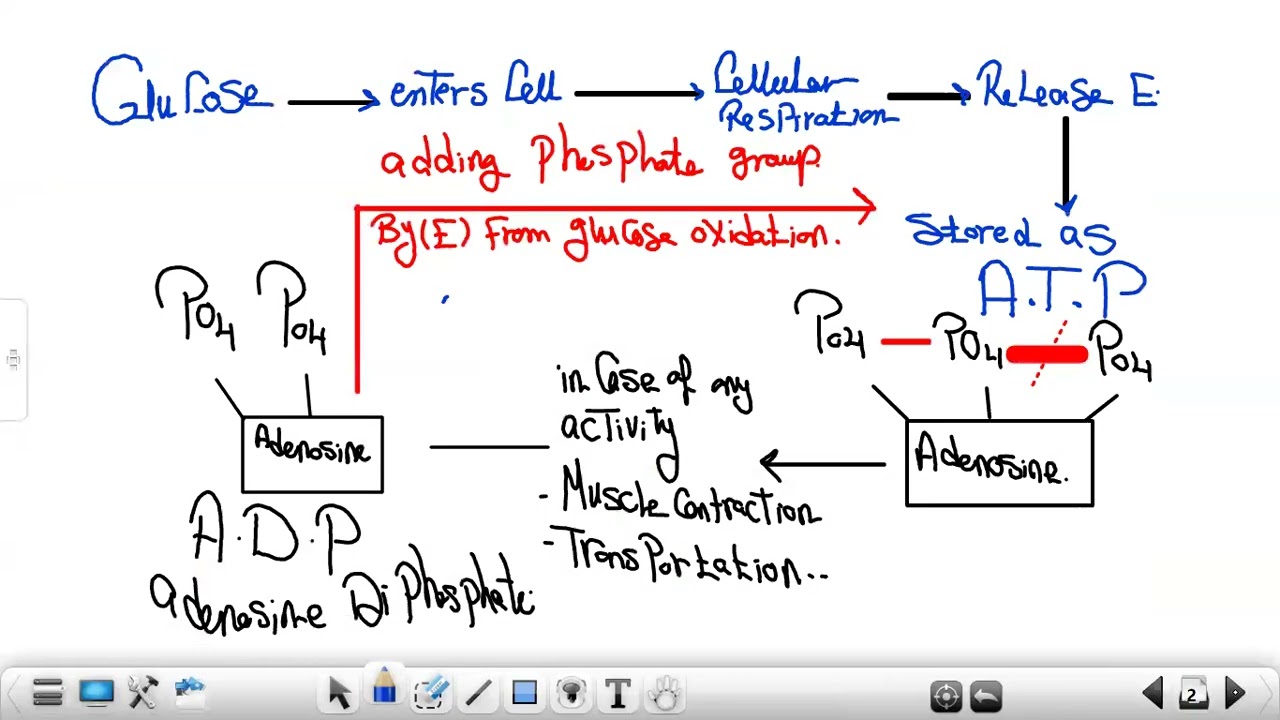 Glucose → enters Cell → Cellular Respiration → Release E.
adding Phosphate group.
By (E) From glucose oxidation.
Stored as
A.T.P
PO4 PO4
PO4 PO4 PO4
in Case of any
activity
- Muscle Contraction
- Transportation..
Adenosine
Adenosine.
A.D.P
adenosine Di Phosphate.
2
T